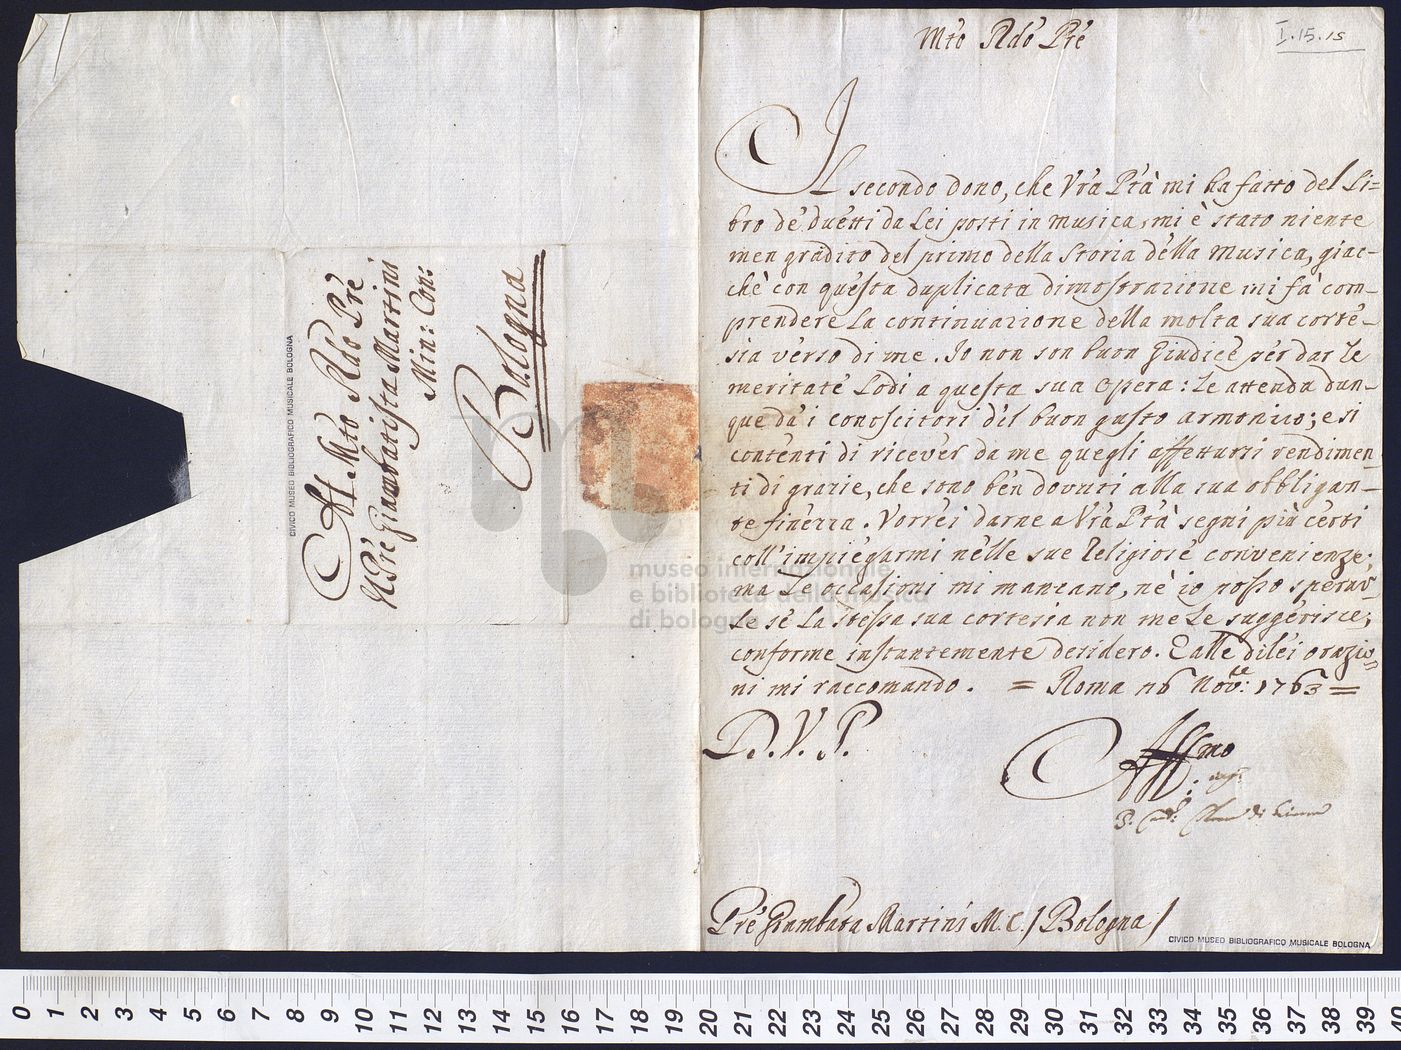 Mto Rdo Pre
I.15.15
Il secondo dono, che Vra Ptà mi ha fatto del Li=
bro de' duetti da Lei posti in musica, mi è stato niente
men gradito del primo della Storia della Musica, giac-
chè con questa duplicata dimostrazione mi fà com-
prendere la continuazione della molta sua corte-
sia verso di me. Io non son buon Giudice per dar le
meritate Lodi a questa sua Opera: Le attenda dun-
que da' i conoscitori del buon gusto armonico; e si
contenti di ricever da me quegli affettuosi rendimen
ti di grazie, che sono ben dovuti alla sua obbligan-
te finezza. Vorrei darne a Vra Ptà segni più certi
coll'impiegarmi nelle sue Religiose convenienze;
ma Le occasioni mi mancano, nè io posso sperar
Le se La stessa sua cortesia non me Le suggerisce;
conforme instantemente desidero. E alle di lei orazio=
ni mi raccomando. = Roma 16 Nov.: 1763 =
D. V. P.
Affmo
Pre Giambata Martini M. C. / Bologna /
CIVICO MUSEO BIBLIOGRAFICO MUSICALE BOLOGNA
Al Mto Rdo Pre
Il Pre Giambatista Martini
Min: Con:
Bologna
CIVICO MUSEO BIBLIOGRAFICO MUSICALE BOLOGNA
museo internazionale
e biblioteca della musica
di bologna
0 1 2 3 4 5 6 7 8 9 10 11 12 13 14 15 16 17 18 19 20 21 22 23 24 25 26 27 28 29 30 31 32 33 34 35 36 37 38 39 40